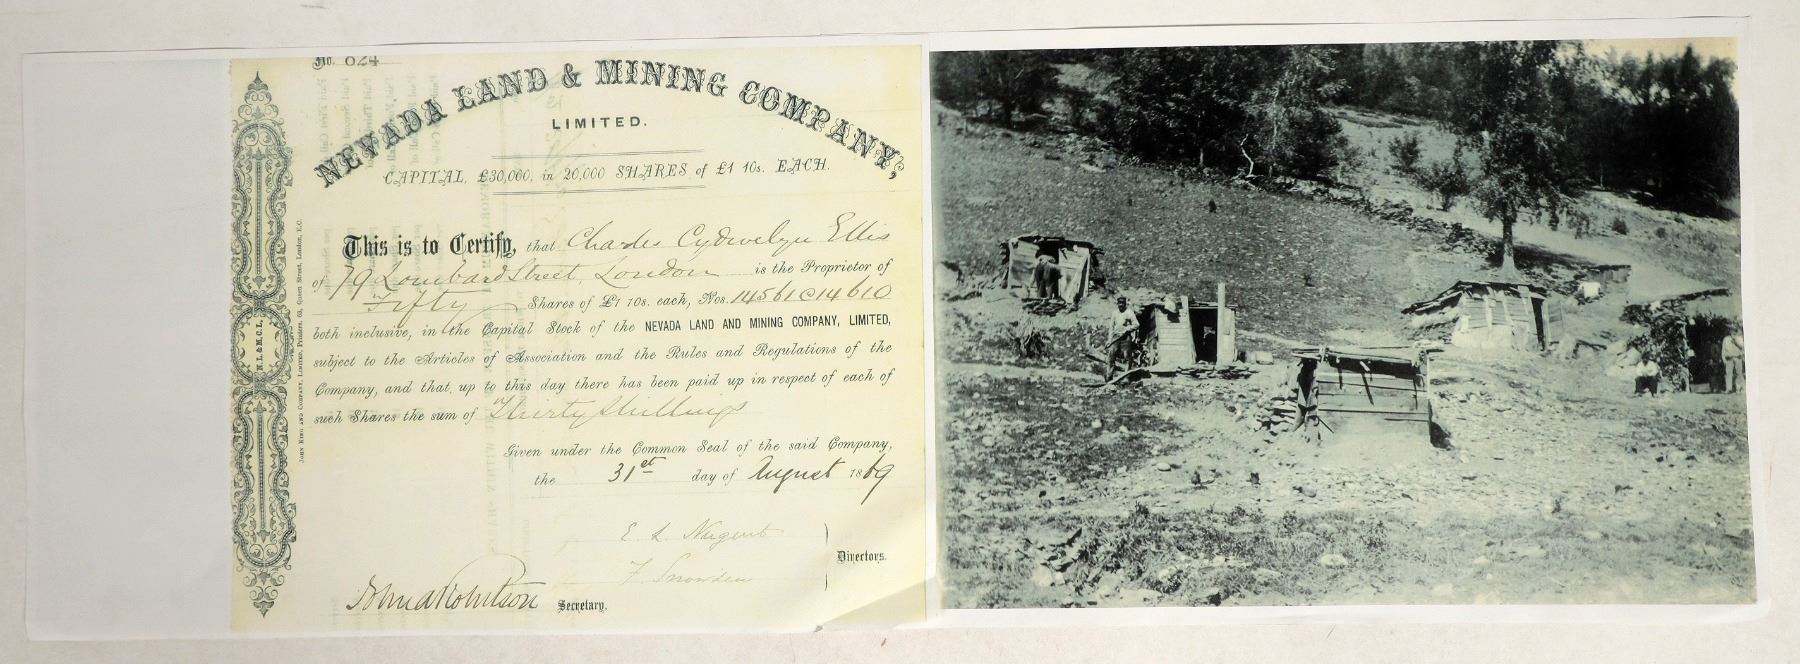 No. 624
NEVADA LAND & MINING COMPANY,
LIMITED.
CAPITAL, £30,000, in 20,000 SHARES of £1 10s. EACH.
This is to Certify, that Charles Cydwelyn Ellis
of 79 Lombard Street, London is the Proprietor of
Fifty Shares of £1 10s. each, Nos. 14561 @ 14610
both inclusive, in the Capital Stock of the NEVADA LAND AND MINING COMPANY, LIMITED,
subject to the Articles of Association and the Rules and Regulations of the
Company, and that up to this day there has been paid up in respect of each of
such Shares the sum of Thirty Shillings
Given under the Common Seal of the said Company,
the 31st day of August 1869
E L Nugent
F Snowden
Directors.
John A Robertson Secretary.
N. L. & M. C. L.
JOHN KING AND COMPANY, LIMITED, Printers, 63, Queen Street, London, E.C.